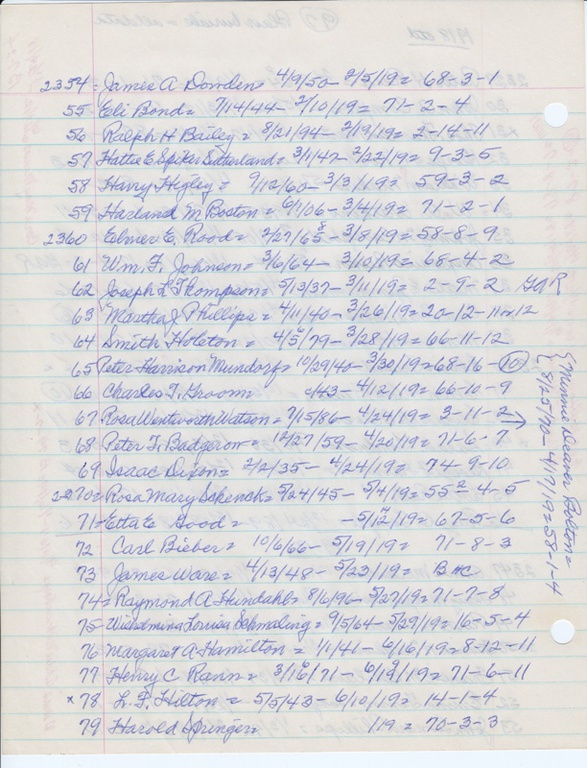 2354 = James A Dowden = 4/9/50 - 2/5/19 = 68-3-1
55 Eli Bond = 7/14/44 - 2/10/19 = 71-2-4
56 Ralph H Bailey = 8/21/94 - 2/19/19 = 2-14-11
57 Hattie E Spiker Sutherland = 3/1/47 - 2/22/19 = 9-3-5
58 Harry Higley = 9/12/60 - 3/3/19 = 59-3-2
59 Harland M. Boston = 6/1/06 - 3/4/19 = 71-2-1
2360 Elmer E. Rood = 2/27/65 - 3/8/19 = 58-8-9
61 Wm. F. Johnson = 3/6/64 - 3/10/19 = 68-4-2
62 Joseph L Thompson = 5/13/37 - 3/11/19 = 2-9-2 GAR
63 Martha J Phillips = 4/11/40 - 3/26/19 = 20-12-11 or 12
64 Smith Holeton = 4/5/79 - 3/28/19 = 66-11-12
65 Peter Harrison Mundorf = 10/29/40 - 3/30/19 = 68-16-10
66 Charles T. Groom c/43 - 4/12/19 = 66-10-9
67 Rosa Wentworth Watson = 7/15/86 - 4/24/19 = 3-11-2 →
{Minnie Deaner Bolton =
8/25/70 - 4/17/19 = 58-1-4
68 Peter F. Badgerow = 12/27/59 - 4/20/19 = 71-6-7
69 Isaac Dixon = 2/2/35 - 4/24/19 = 74-9-10
70 = Rosa Mary Schenck = 5/24/45 - 5/4/19 = 55-4-5
71 - Etta E Good = - 5/12/19 = 67-5-6
72 Carl Bieber = 10/6/66 - 5/19/19 = 71-8-3
73 James Ware = 4/13/48 - 5/23/19 = B mc
74 = Raymond A Heindahl = 8/6/96 - 5/27/19 = 71-7-8
75 = Louisa Schmaling = 9/5/64 5/29/19 = 16-5-4
76 Margaret A Hamilton = 1/1/41 - 6/16/19 = 8-12-11
77 Henry C Rann = 3/16/71 - 6/19/19 = 71-6-11
x 78 L. F. Hilton = 5/5/43 - 6/10/19 = 14-1-4
79 Harold Springer = /19 = 70-3-3